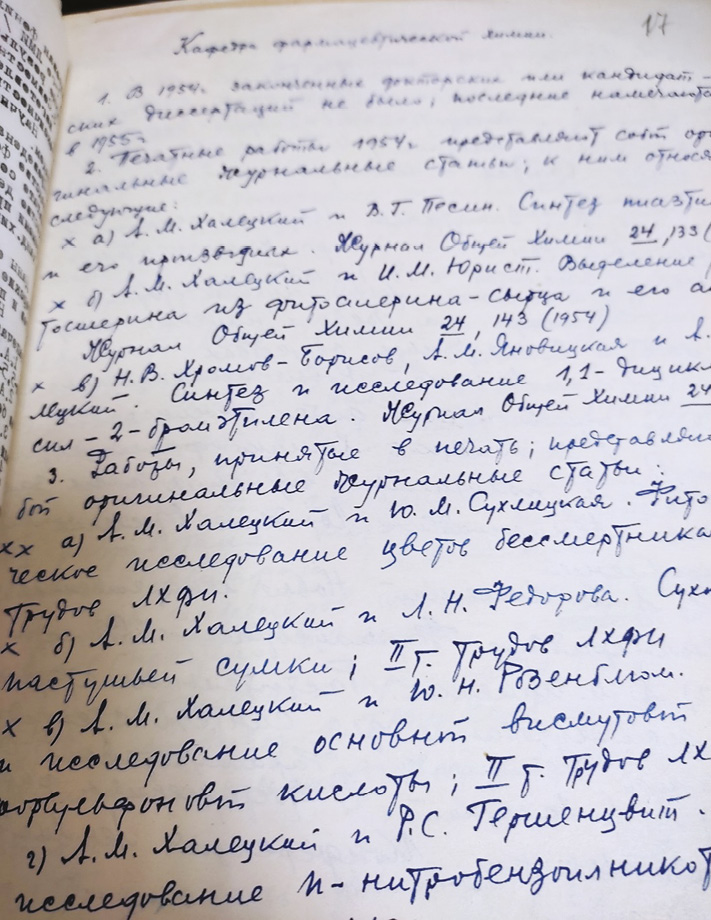 17
Кафедра фармацевтической химии.
1. В 1954г. законченных докторских или кандидат-
ских диссертаций не было; последние намечают
в 1955г
2. Печатные работы 1954г представляют собт ори
гинальные журнальные статьи; к ним относя
следующие:
х а) А. М. Халецкий и В. Г. Песин. Синтез пиазти
и его производных. Журнал Общей Химии 24, 133 (
х б) А. М. Халецкий и И. М. Юрист. Выделение
из фитостерина-сырца и его
Журнал Общей Химии 24, 143 (1954)
х в) Н. В. Хромов-Борисов, А. М. Яновицкая и А.
лецкий. Синтез и исследование 1,1-дицикл
сил-2-бромэтилена. Журнал Общей Химии 24
3. Работы, принятые в печать; представля
бот оригинальные журнальные статьи:
хх а) А. М. Халецкий и Ю. М. Сухлицкая. Фито
ческое исследование цветов бессмертника
Трудов ЛХФИ.
х б) А. М. Халецкий и Л. Н. Федорова.
пастушьей сумки; II т. Трудов ЛХФИ
х в) А. М. Халецкий и Ю. Н. Розенблюм.
и исследование основнт висмутовт
кислоты; II т. Трудов ЛХ
г) А. М. Халецкий и Р. С. Гершенцвит.
исследование п-нитробензоилникот